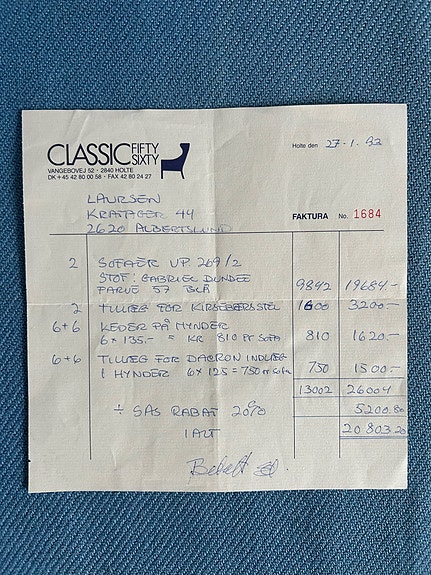 CLASSIC FIFTY SIXTY
VANGEBOVEJ 52 · 2840 HOLTE
DK + 45 42 80 00 58 · FAX 42 80 24 27
Holte den 27.1.92
LAURSEN
KRATAGER 44
2620 ALBERTSLUND
FAKTURA No. 1684
2 SOFAER VP 269/2
STOF: GABRIEL DUNDEE
FARVE 57 BLÅ 9842 19684.-
2 TILLÆG FOR KIRSEBÆRSTEL 1600 3200.-
6+6 KEDER PÅ HYNDER
6 x 135.- = KR 810 PR SOFA 810 1620.-
6+6 TILLÆG FOR DACRON INDLÆG
I HYNDER 6 x 125 = 750 PR SOFA 750 1500.-
13002 26004
÷ SAS RABAT 20% 5200.80
I ALT 20803.20
Betalt